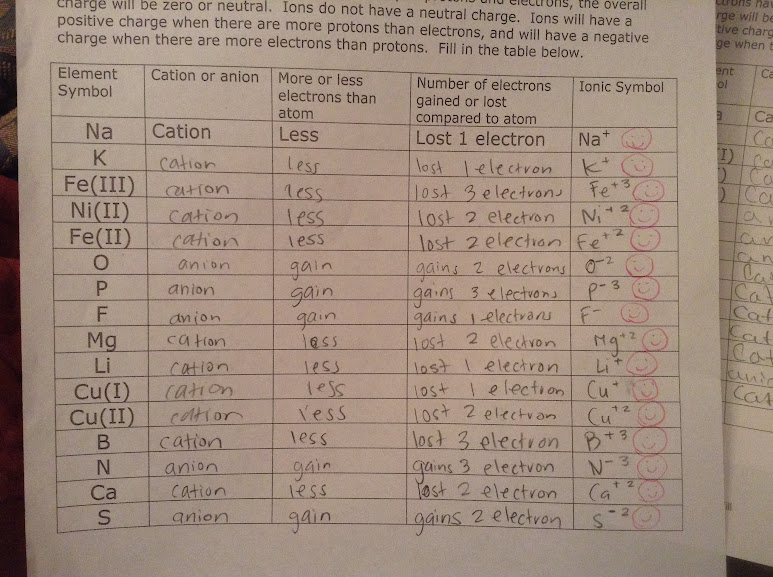 charge will be zero or neutral. Ions do not have a neutral charge. Ions will have a
positive charge when there are more protons than electrons, and will have a negative
charge when there are more electrons than protons. Fill in the table below.
Element Symbol Cation or anion More or less electrons than atom Number of electrons gained or lost compared to atom Ionic Symbol
Na Cation Less Lost 1 electron Na+
K cation less lost 1 electron K+
Fe(III) cation less lost 3 electrons Fe+3
Ni(II) cation less lost 2 electron Ni+2
Fe(II) cation less lost 2 electron Fe+2
O anion gain gains 2 electrons O-2
P anion gain gains 3 electrons P-3
F anion gain gains 1 electrons F-
Mg cation less lost 2 electron Mg+2
Li cation less lost 1 electron Li+
Cu(I) cation less lost 1 electron Cu+
Cu(II) cation less lost 2 electron Cu+2
B cation less lost 3 electron B+3
N anion gain gains 3 electron N-3
Ca cation less lost 2 electron Ca+2
S anion gain gains 2 electron S-2